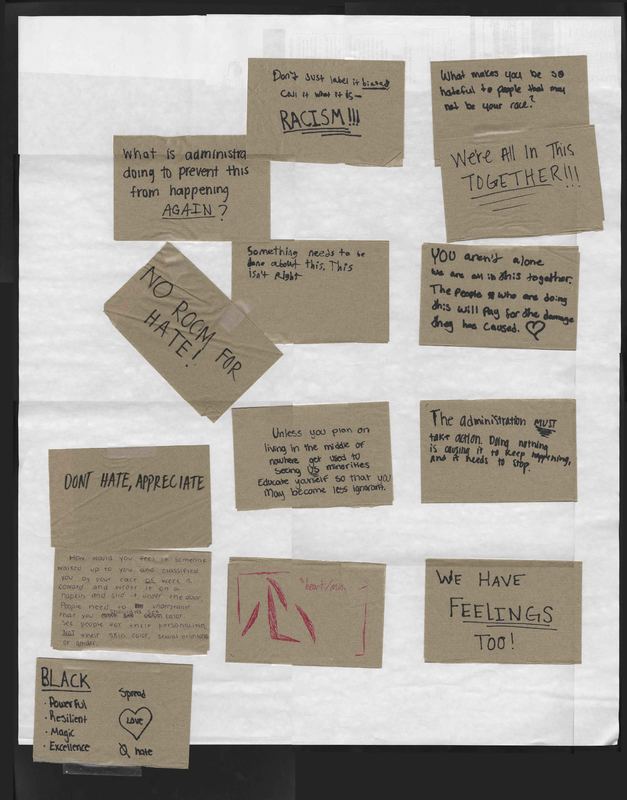 Don't Just label it biased
Call it what it is—
RACISM!!!
What makes you be so
hateful to people that may
not be your race?
What is administra
doing to prevent this
from happening
AGAIN?
We're All In This
TOGETHER!!!
Something needs to be
done about this. This
isn't Right
YOU aren't alone
we are all in this together.
The People who are doing
this will Pay for the damage
they has caused.
NO ROOM FOR
HATE!
Unless you plan on
living in the middle of
nowhere get used to
seeing US minorities
Educate yourself so that you
may become less ignorant.
The administration MUST
take action. Doing nothing
is causing it to keep happening,
and it needs to stop.
DONT HATE, APPRECIATE
How would you feel if someone
walked up to you and classified
you by your race or were a
coward and wrote it on a
napkin and slid it under the door.
People need to understand
that you color.
See people for their personality,
NOT their skin color, sexual orientation
or gender.
heart/mind
WE HAVE
FEELINGS
TOO!
BLACK
• Powerful
• Resilient
• Magic
• Excellence
Spread
LOVE
hate